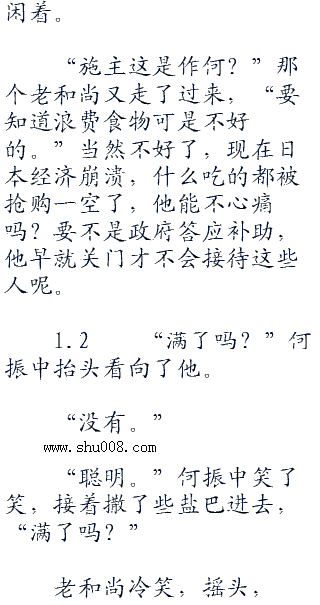 闲着。
“施主这是作何？”那
个老和尚又走了过来，“要
知道浪费食物可是不好
的。”当然不好了，现在日
本经济崩溃，什么吃的都被
抢购一空了，他能不心痛
吗？要不是政府答应补助，
他早就关门才不会接待这些
人呢。
1.2 “满了吗？”何
振中抬头看向了他。
“没有。”
www.shu008.com
“聪明。”何振中笑了
笑，接着撒了些盐巴进去，
“满了吗？”
老和尚冷笑，摇头，